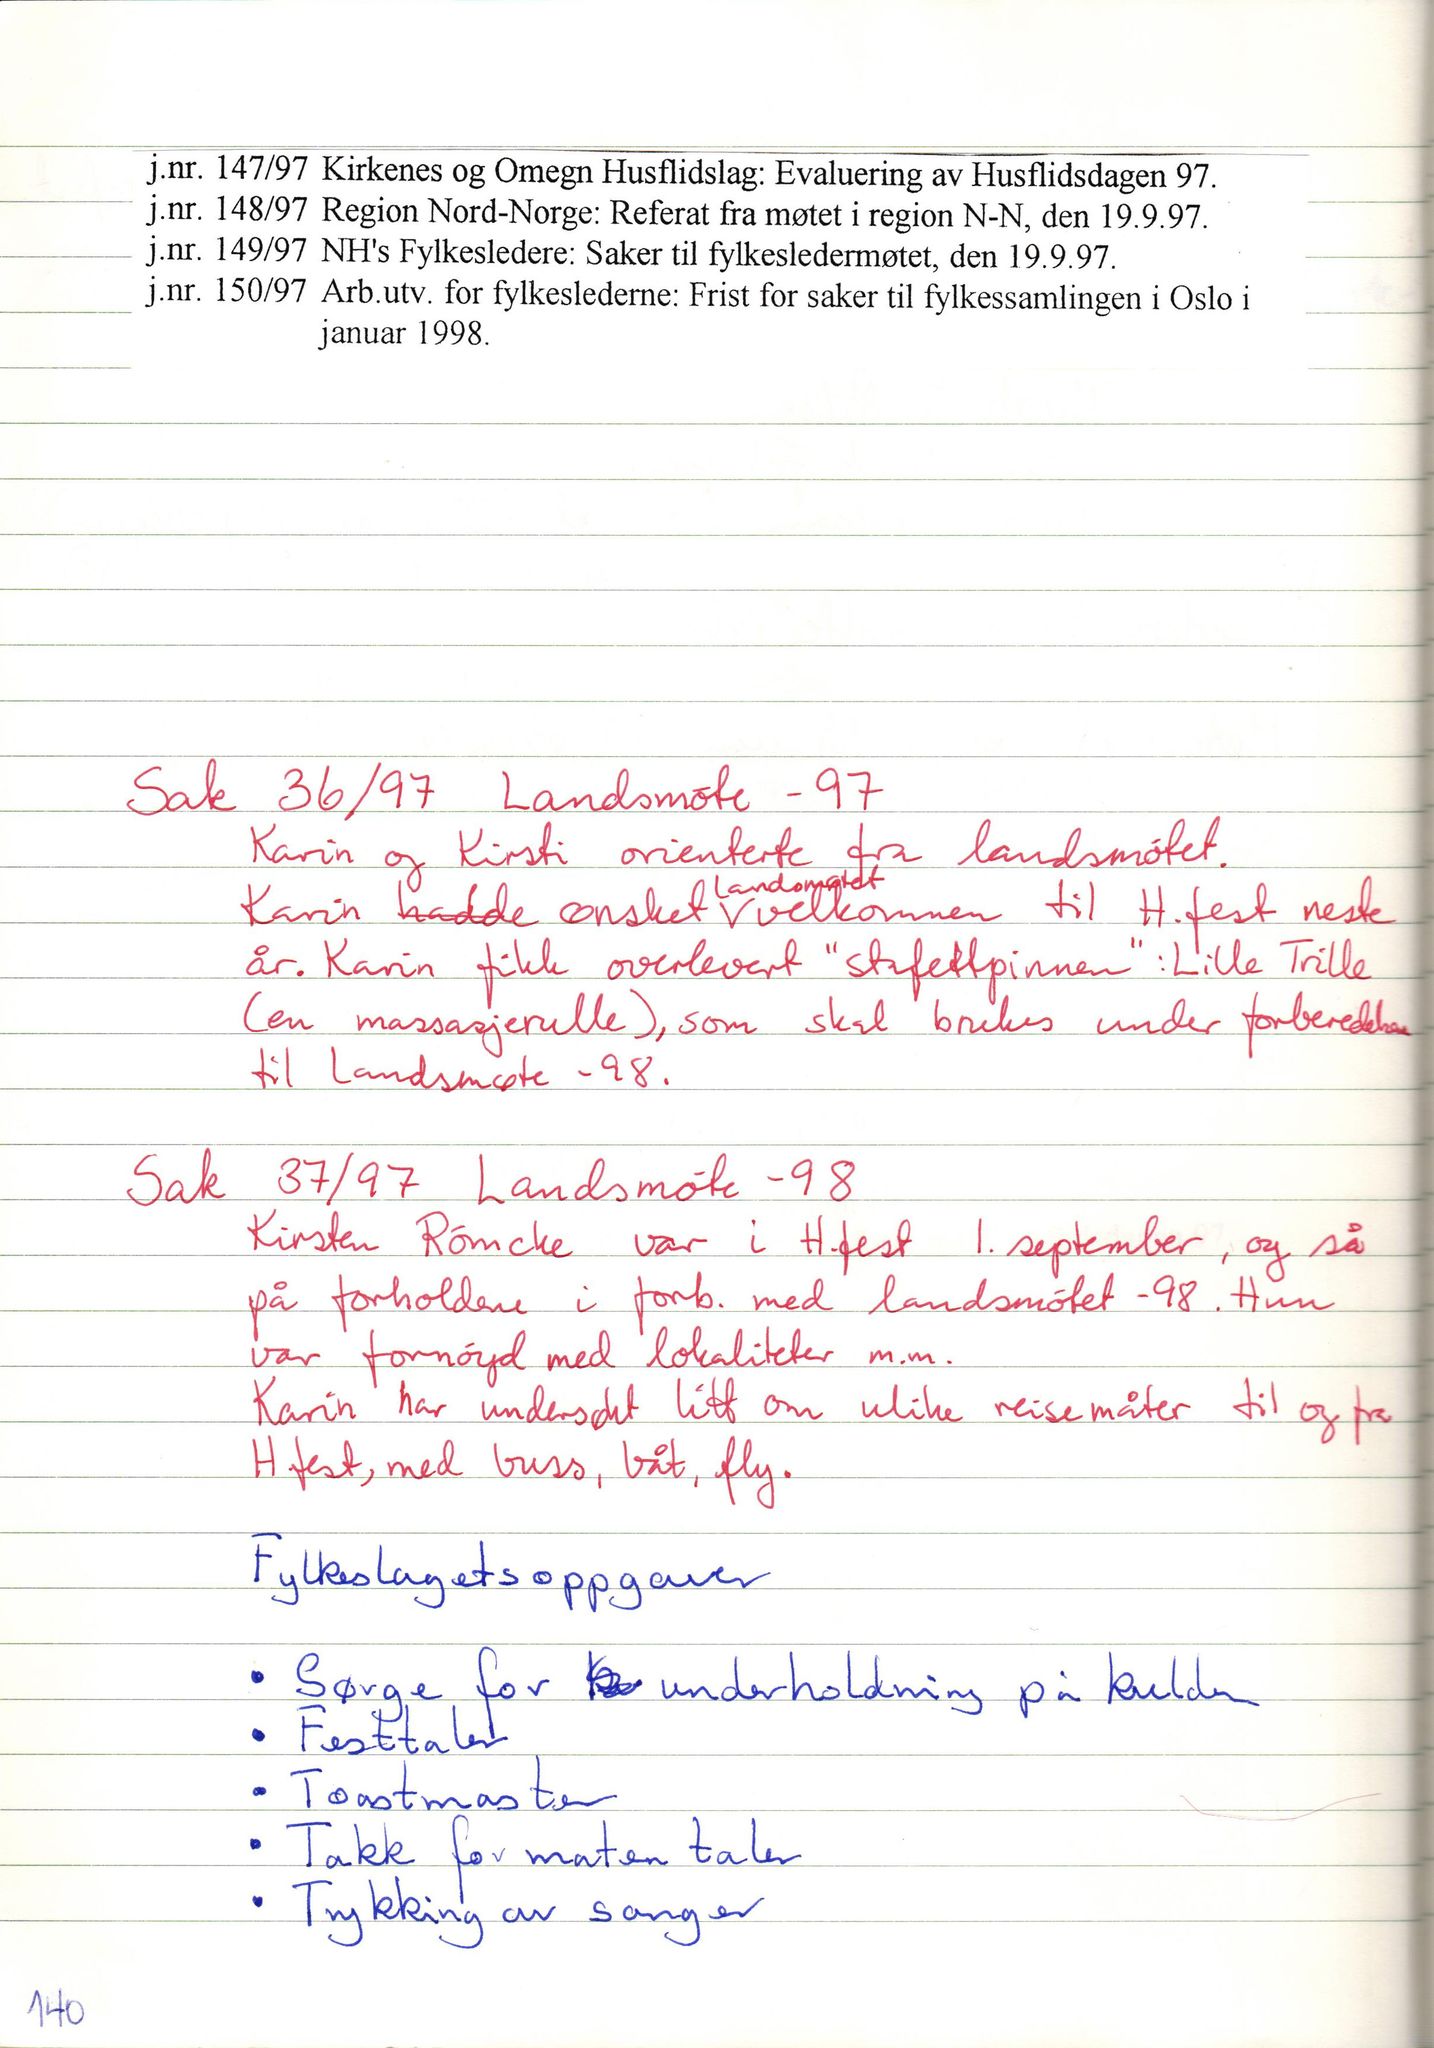 j.nr. 147/97 Kirkenes og Omegn Husflidslag: Evaluering av Husflidsdagen 97.
j.nr. 148/97 Region Nord-Norge: Referat fra møtet i region N-N, den 19.9.97.
j.nr. 149/97 NH's Fylkesledere: Saker til fylkesledermøtet, den 19.9.97.
j.nr. 150/97 Arb.utv. for fylkeslederne: Frist for saker til fylkessamlingen i Oslo i
januar 1998.
Sak 36/97 Landsmöte -97
Karin og Kirsti orienterte fra landsmötet.
Landsmøtet
Karin hadde ønsket velkommen til H.fest neste
år. Karin fikk overlevert "stafettpinnen": Lille Trille
(en massasjerulle), som skal brukes under forberedelsene
til Landsmøte -98.
Sak 37/97 Landsmöte -98
Kirsten Römcke var i H.fest 1. september, og så
på forholdene i forb. med landsmötet -98. Hun
var fornöyd med lokaliteter m.m.
Karin har undersøkt litt om ulike reisemåter til og fra
H.fest, med buss, båt, fly.
Fylkeslagets oppgaver
• Sørge for underholdning på kvelden
• Festtaler
• Toastmaster
• Takk for maten taler
• Trykking av sanger
140